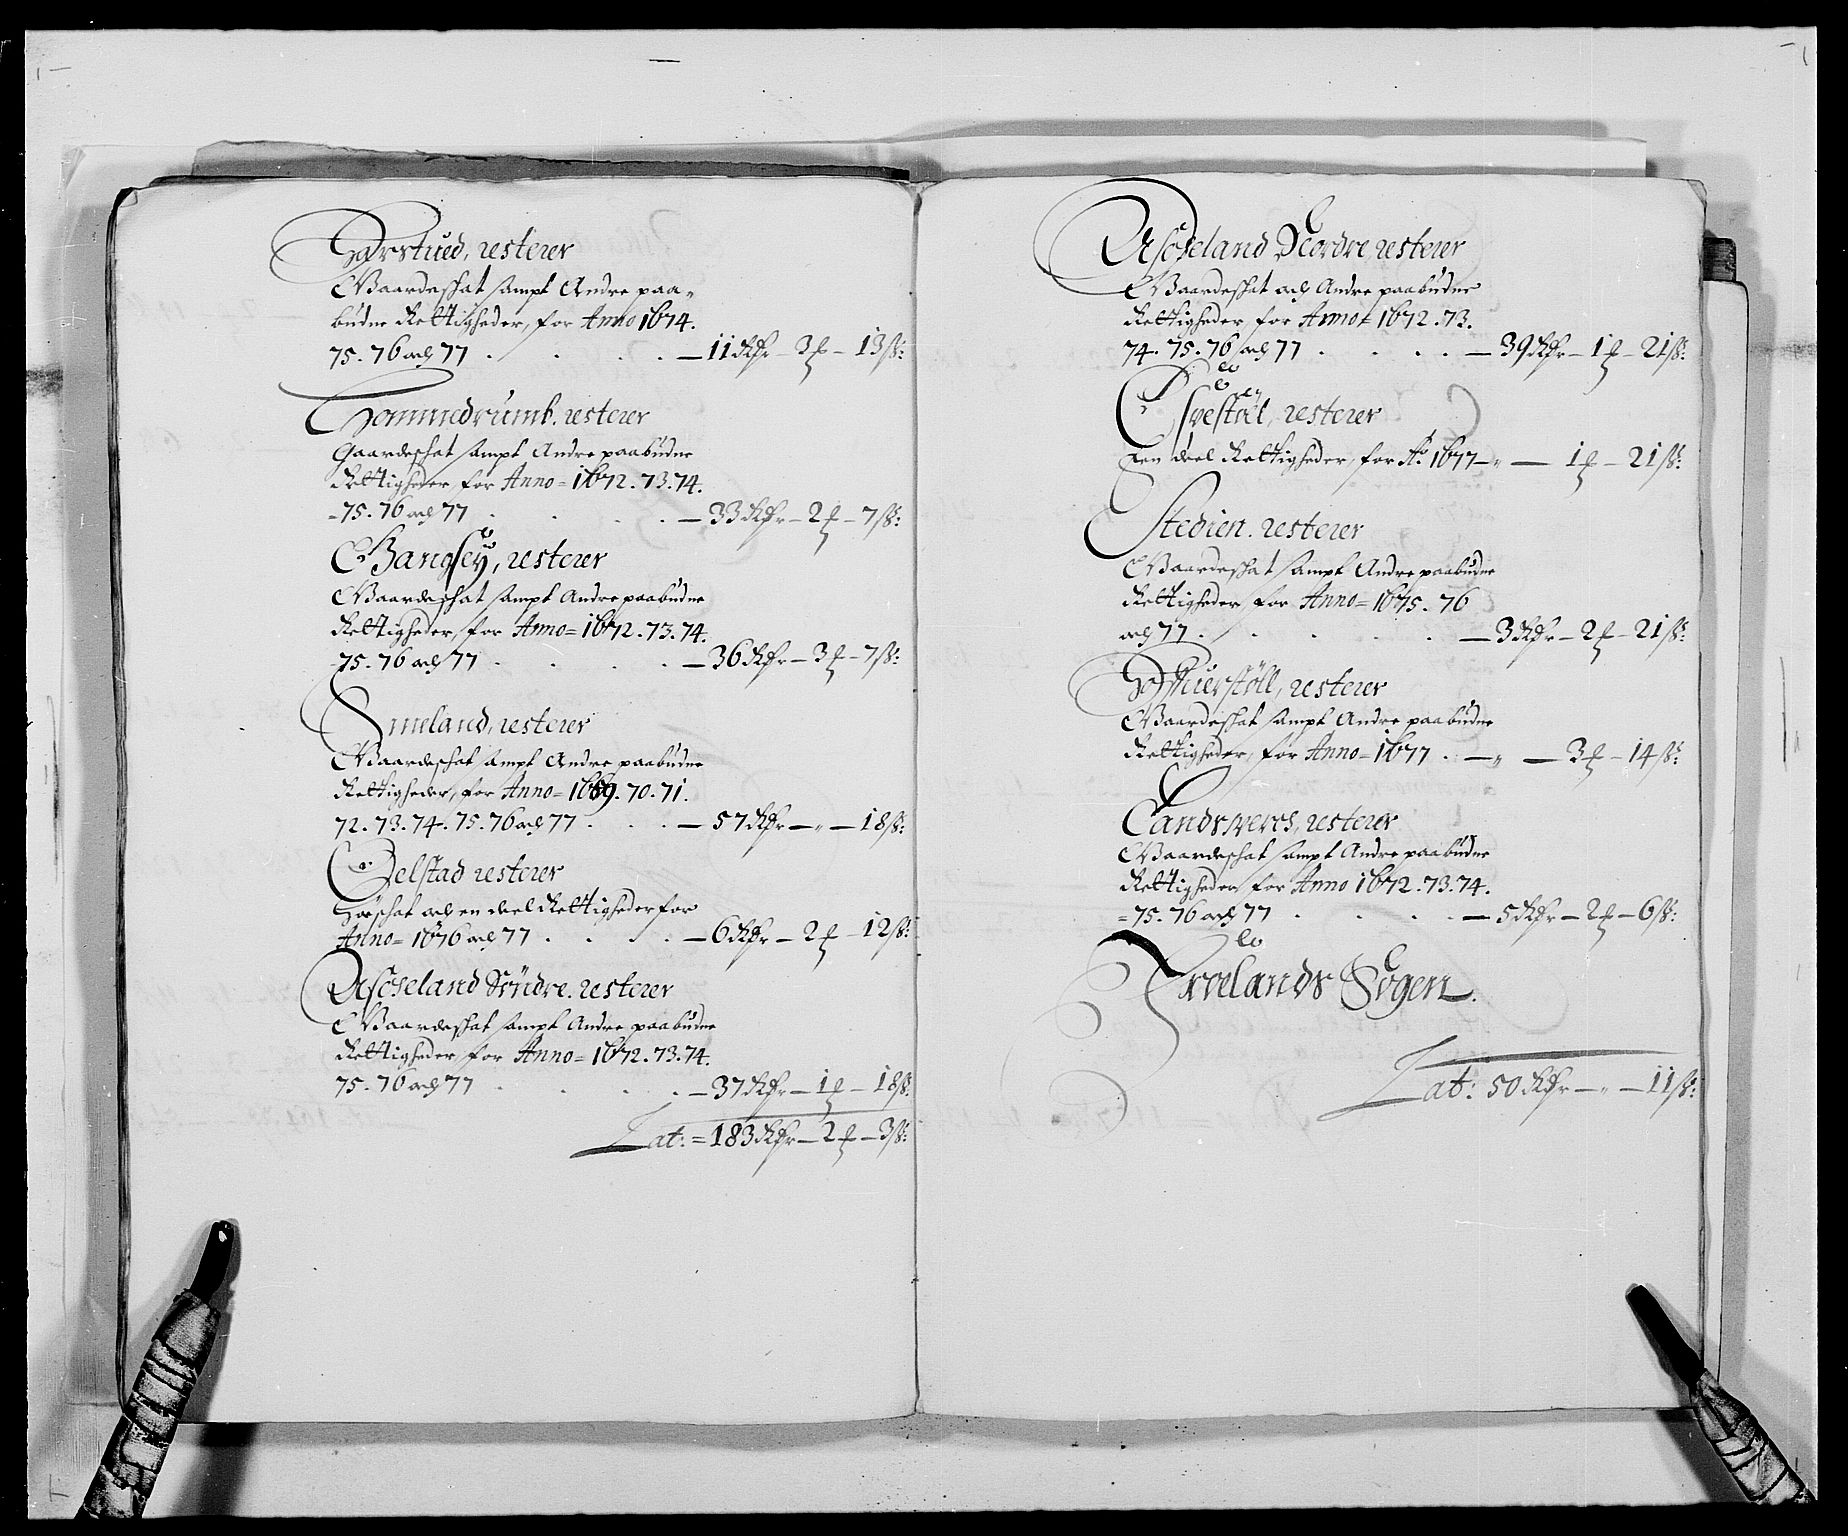 Harstued, resterer
Gaardeschat sampt Andre paa-
budne Rettigheder, for Anno 1674.
75. 76 och 77 . . . . — 11 Rdr — 3 ʄ — 13 ß:
Hommedrumb. resterer
Gaardeschat sampt Andre paabudne
Rettigheder for Anno = 1672. 73. 74.
- 75. 76 och 77 . . . . — 33 Rdr — 2 ʄ — 7 ß:
Bangsey, resterer
Gaardeschat sampt Andre paabudne
Rettigheder, for Anno = 1672. 73. 74.
75. 76 och 77 . . . . — 36 Rdr — 3 ʄ — 7 ß:
Imeland, resterer
Gaardeschat sampt Andre paabudne
Rettigheder, for Anno = 1669. 70. 71.
72. 73. 74. 75. 76 och 77 . . . — 57 Rdr — „ — 18 ß:
Delstad resterer
och en deel Rettigheder for
Anno = 1676 och 77 . . . . — 6 Rdr — 2 ʄ — 12 ß:
Aschseland Söndre. resterer
Gaardeschat sampt Andre paabudne
Rettigheder for Anno = 1672. 73. 74.
75. 76 och 77 . . . . — 37 Rdr — 1 ʄ — 18 ß:
Lat: = 183 Rdr — 2 ʄ — 3 ß:
Aschseland Nordre resterer
Gaardeschat och Andre paabudne
Rettigheder for Anno = 1672. 73.
74. 75. 76 och 77 . . . . — 39 Rdr — 1 ʄ — 21 ß:
resterer
Een deel Rettigheder, for Ao 1677 — „ — 1 ʄ — 21 ß:
Stedien. resterer
Gaardeschat sampt Andre paabudne
Rettigheder for Anno = 1675. 76
och 77 . . . . — 3 Rdr — 2 ʄ — 21 ß:
resterer
Gaardeschat sampt Andre paabudne
Rettigheder, for Anno = 1677 . — „ — 3 ʄ — 14 ß:
Landsverch, resterer
Gaardeschat sampt Andre paabudne
Rettigheder for Anno 1672. 73. 74.
= 75. 76 och 77 . . . . — 5 Rdr — 2 ʄ — 6 ß:
Sogen.
Lat: 50 Rdr — „ — 11 ß: